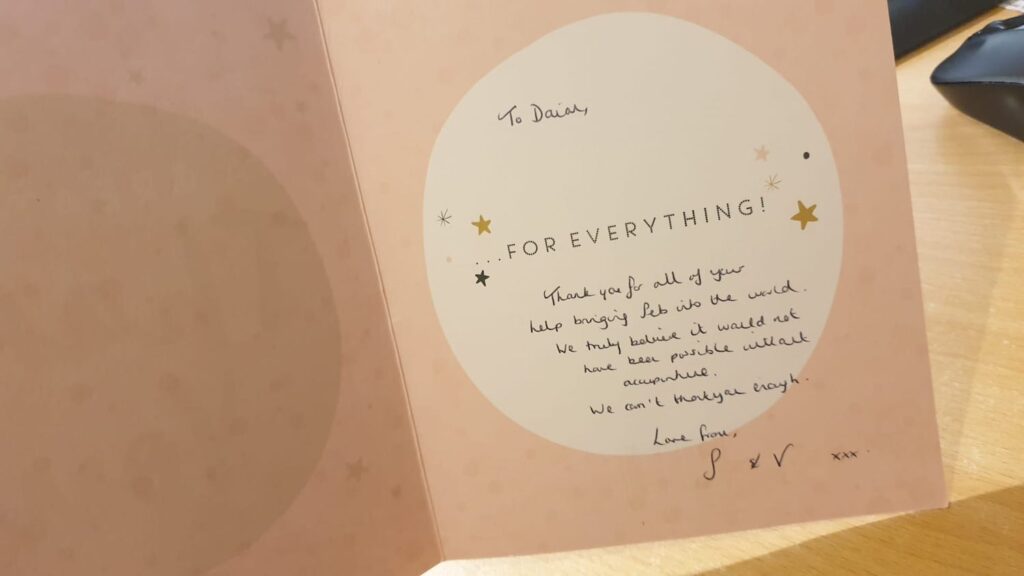 To Daian,
...FOR EVERYTHING!
Thank you for all of your
help bringing Seb into the world.
We truly believe it would not
have been possible without
acupuncture.
We can't thank you enough.
Love from,
S & V xxx.